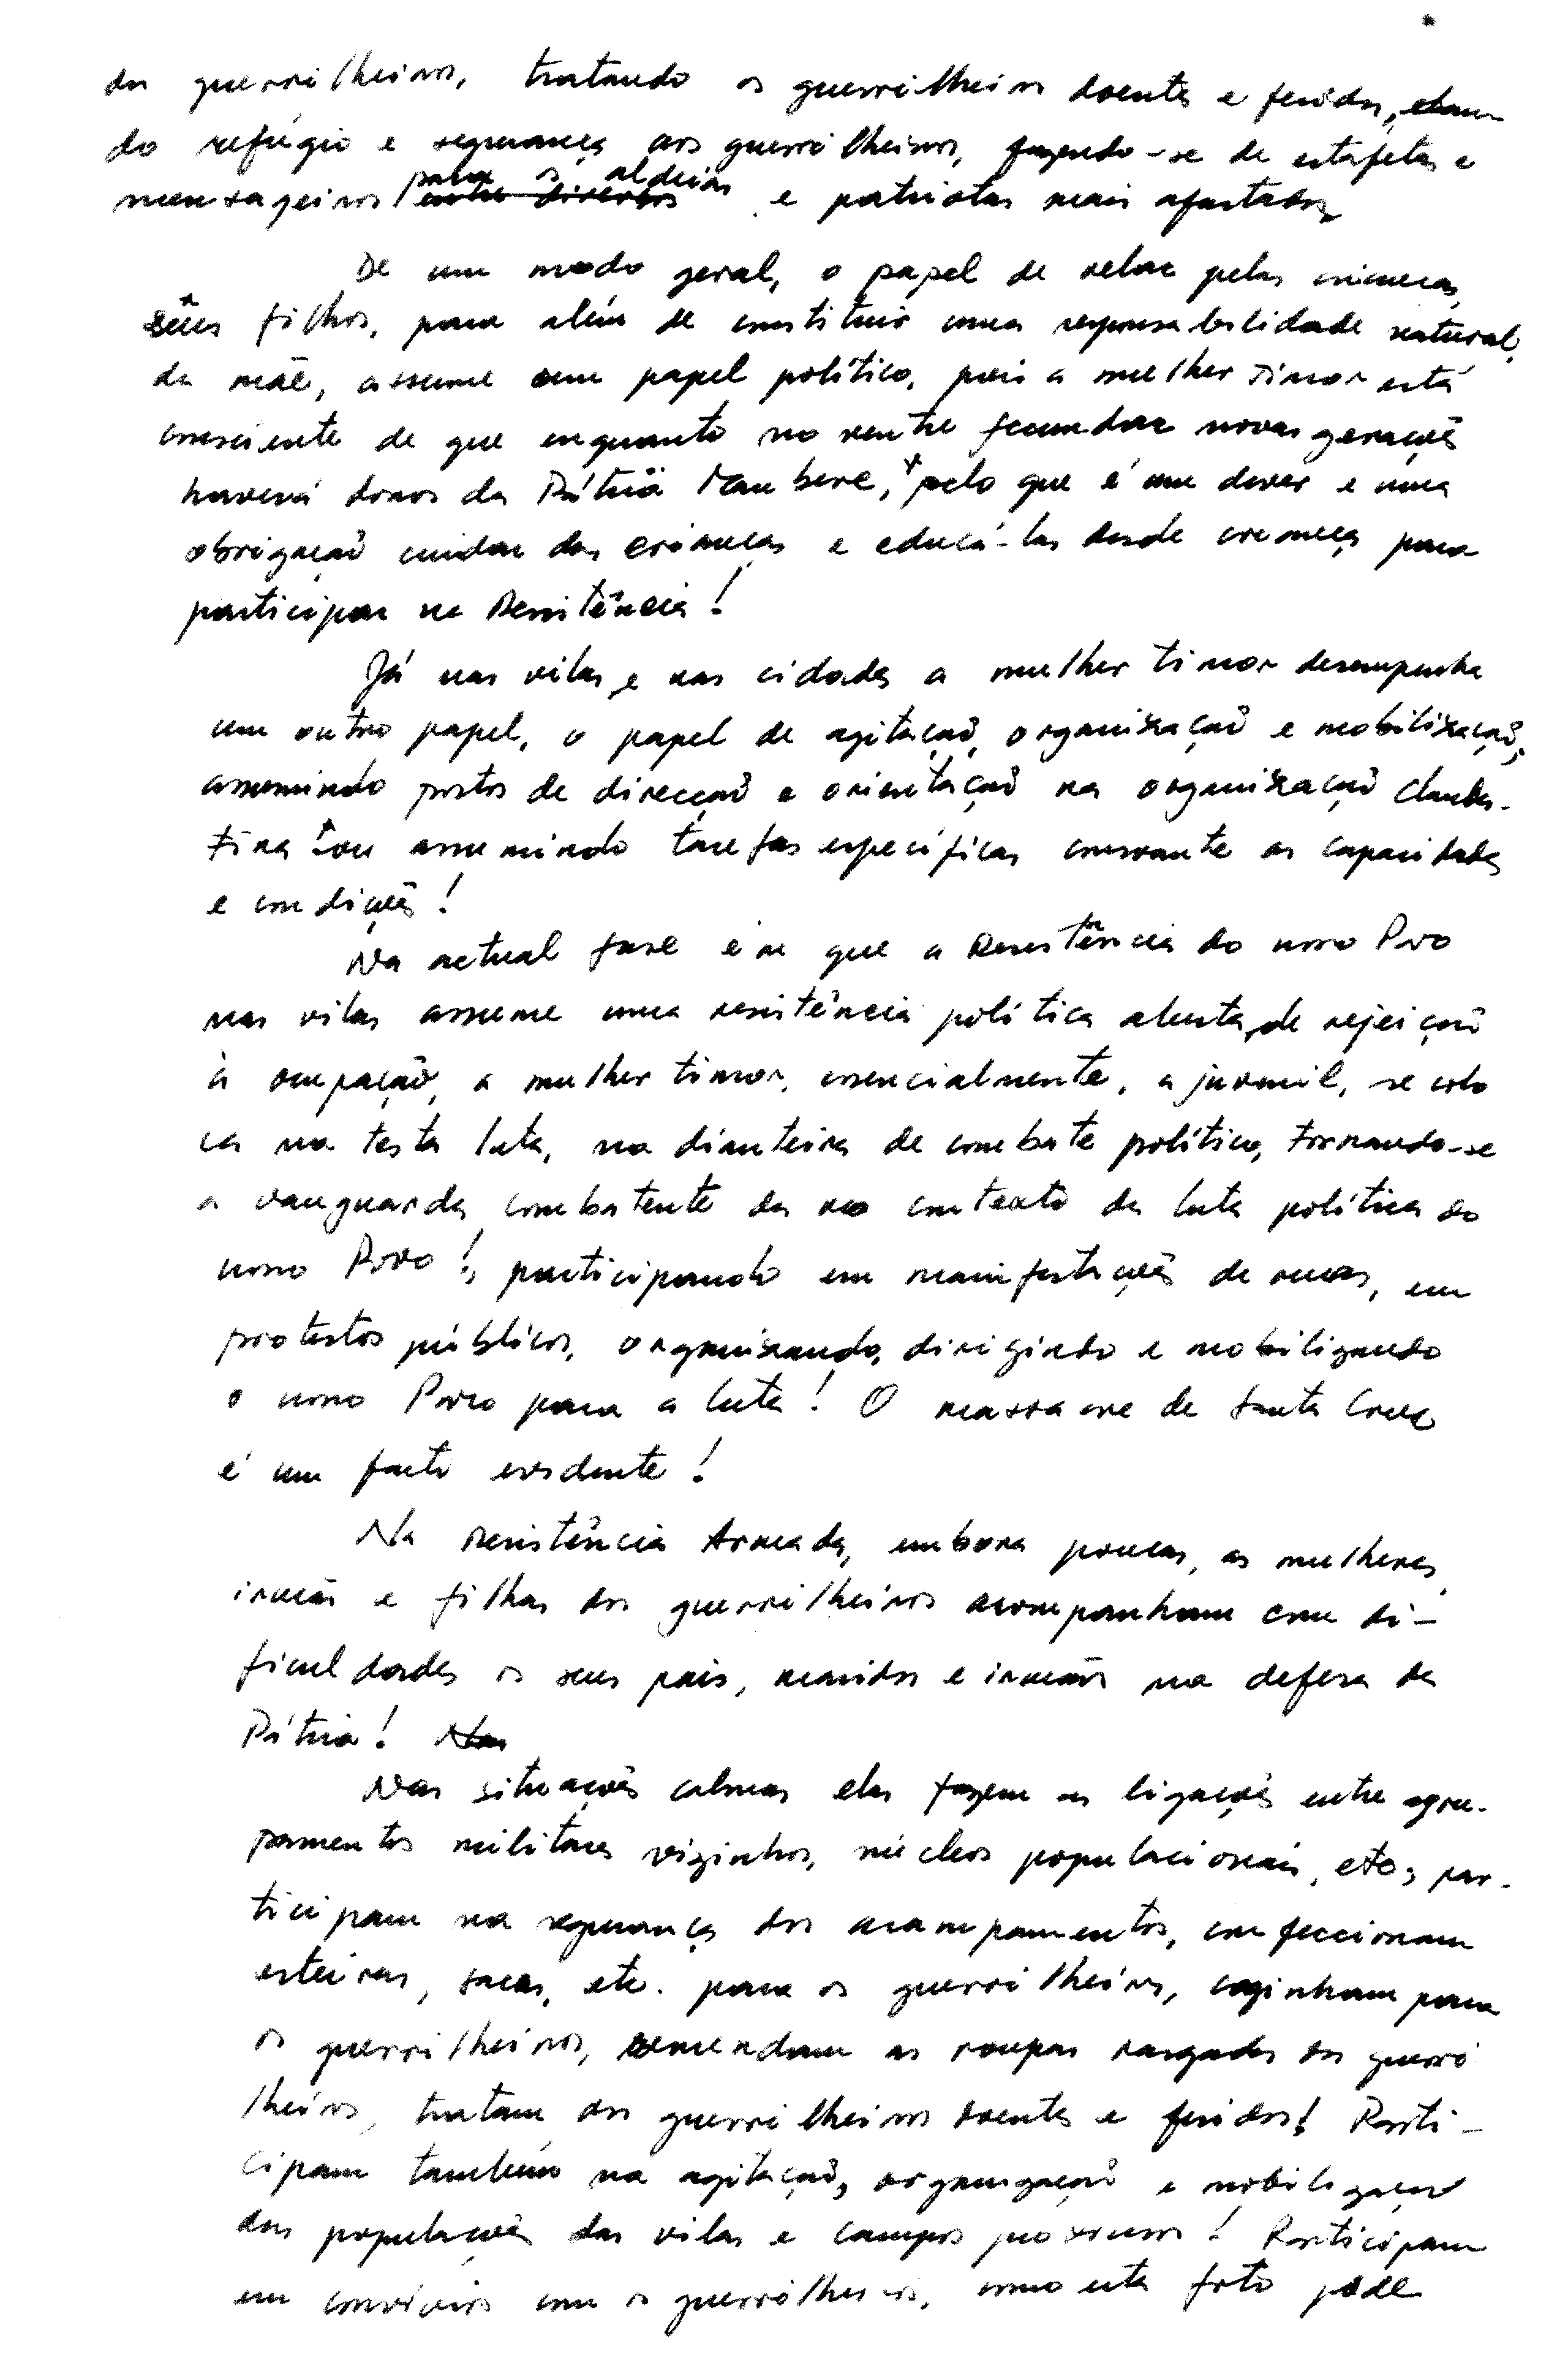 dos guerrilheiros, tratando os guerrilheiros doentes e feridos, dan-
do refúgio e segurança aos guerrilheiros, fazendo-se de estafetas e
mensageiros para as aldeias e patriotas mais afastados
De um modo geral, o papel de velar pelas crianças,
seus filhos, para além de constituir uma responsabilidade natural,
da mãe, assume um papel político, pois a mulher timor está
consciente de que enquanto no ventre fecundar novas gerações
haverá donos da Pátria Maubere, pelo que é um dever e uma
obrigação cuidar das crianças e educá-las desde criança para
participar na Resistência!
Já nas vilas e nas cidades a mulher timor desempenha
um outro papel, o papel de agitação, organização e mobilização,
assumindo postos de direcção e orientação na organização clandes-
tina ou assumindo tarefas específicas consoante as capacidades
e condições!
Na actual fase em que a Resistência do nosso Povo
nas vilas assume uma resistência política aberta, de rejeição
à ocupação, a mulher timor, essencialmente, a juvenil, se colo
ca na testa luta, na dianteira de combate político, tornando-se
a vanguarda combatente da no contexto da luta política do
nosso Povo!, participando em manifestações de ruas, em
protestos públicos, organizando, dirigindo e mobilizando
o nosso Povo para a luta! O massacre de Santa Cruz
é um facto evidente!
Na Resistência Armada, embora poucas, as mulheres,
irmãs e filhas dos guerrilheiros acompanham com di-
ficuldades os seus pais, maridos e irmãos na defesa da
Pátria! Nas
Nas situações calmas elas fazem as ligações entre agru-
pamentos militares vizinhos, núcleos populacionais, etc; par-
ticipam na segurança dos acampamentos, confeccionam
esteiras, sacas, etc. para os guerrilheiros, cozinham para
os guerrilheiros, remendam as roupas rasgadas dos guerri
lheiros, tratam dos guerrilheiros doentes e feridos! Parti-
cipam também na agitação, organização e mobilização
das populações das vilas e campos próximos! Participam
em convívios com os guerrilheiros, como esta foto pode